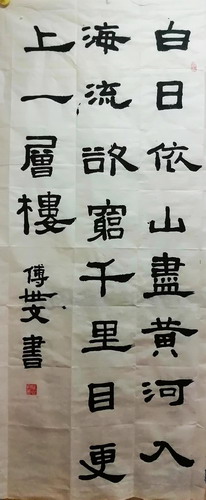 白日依山盡黄河入
海流欲窮千里目更
上一層樓
傅世文書